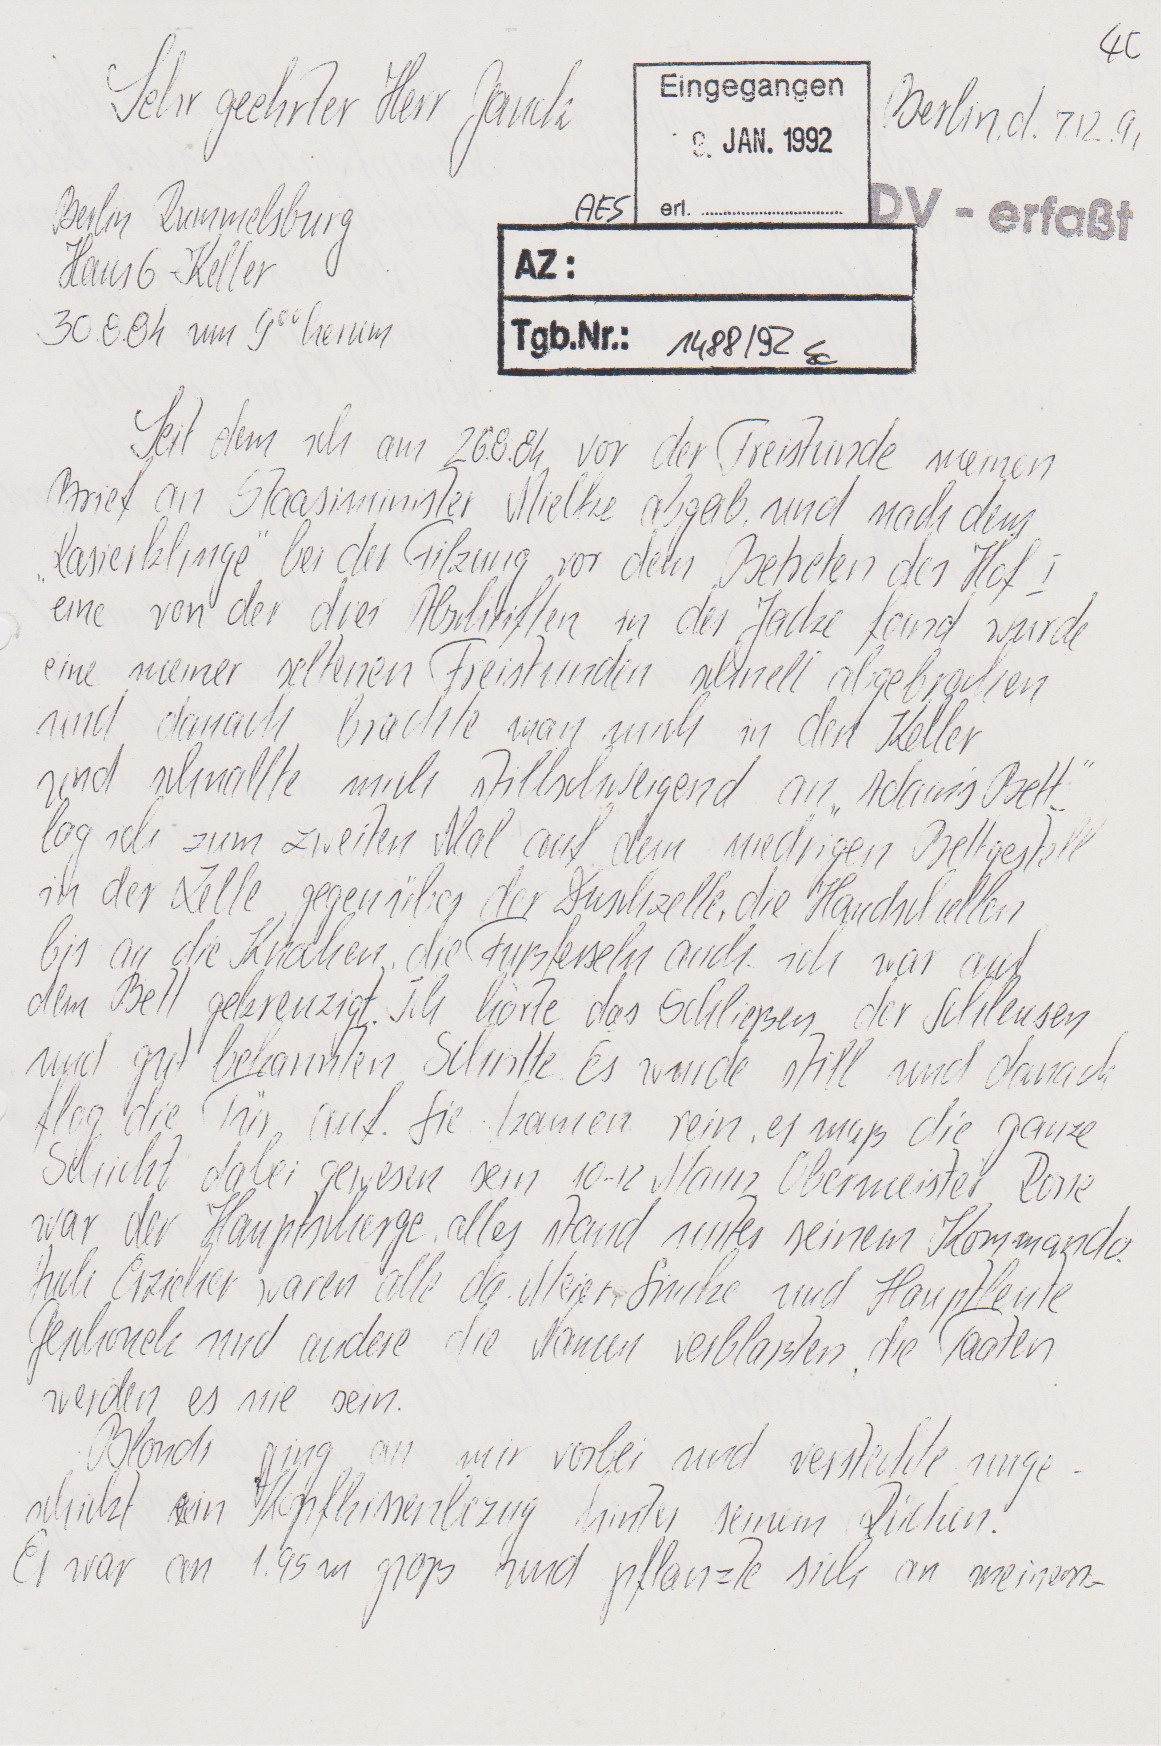 4C
Sehr geehrter Herr Janck
Eingegangen
9. JAN. 1992
erl. ........................
Berlin, d. 7.12.91
DV - erfaßt
AES
Berlin Rummelsburg
Haus 6 - Keller
30.8.84 um 9⁰⁰ herum
AZ:
Tgb.Nr.: 1488/92
Seit dem ich am 26.8.84 vor der Freistunde meinen
Brief an Staasiminister Mielke abgab, und nach dem
„Rasierklinge" bei der Filzung vor dem Betreten des Hof I
eine von der drei Abschriften in der Jacke fand wurde
eine meiner seltenen Freistunden schnell abgebrochen
und danach brachte man mich in den Keller
und schnallte mich stillschweigend an „Adams Bett"
lag ich zum zweiten Mal auf dem niedrigen Bettgestell
in der Zelle gegenüber der Duschzelle, die Handschellen
bis an die Knochen, die Fußfesseln auch. ich war auf
dem Bett gekreuzigt. Ich hörte das Schließen der Schleusen
und gut bekannten Schritte. Es wurde still und danach
flog die Tür auf. Sie kamen rein, es muß die ganze
Schicht dabei gewesen sein 10-12 Mann Obermeister
war der Hauptscherge, alles stand unter seinem Kommando.
Erzieher waren alle da. Meier, und Hauptleute
und andere die Namen verblaßten, die Taaten
werden es nie sein.
Blondi ging an mir vorbei und versteckte unge-
schickt ein Kopfkissenbezug hinter seinem Rücken.
Er war an 1.95 m groß und pflanzte sich an meinem